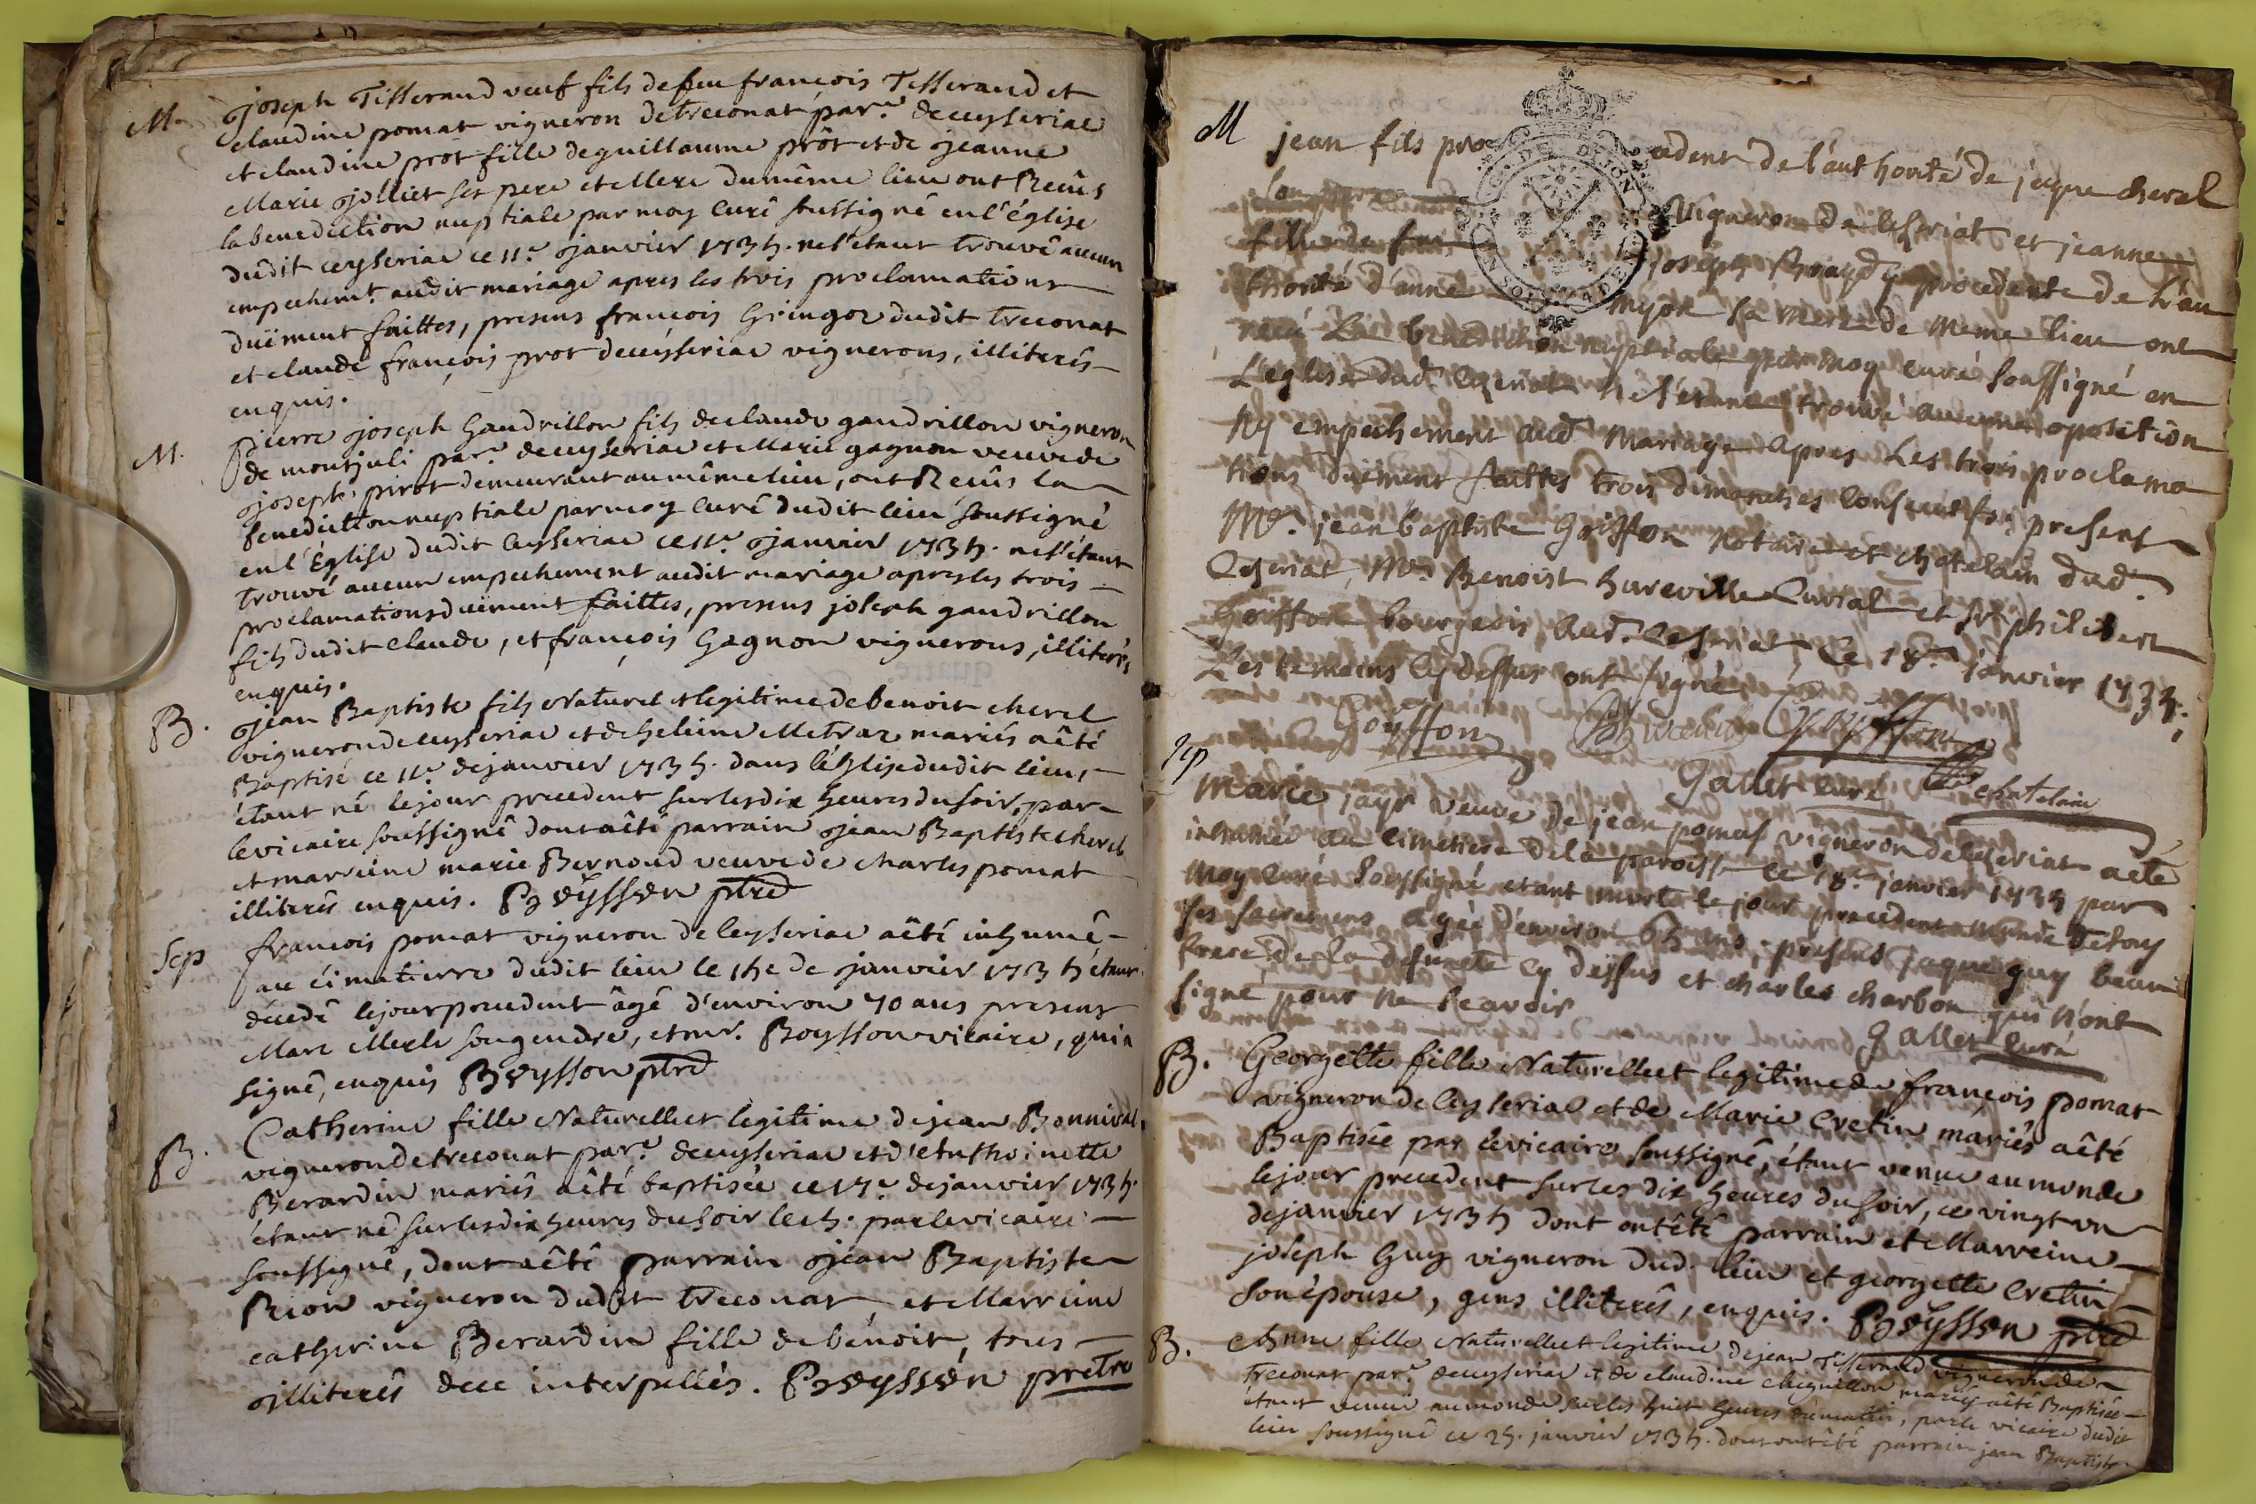 M. joseph Tisserand veuf fils de feu françois Tisserand et
claudine pomat vigneron de treconat par.e de ceyseriac
et claudine prost fille de guillaume prôt et de jeanne
Marie jolliet ses pere et Mere du même lieu ont Reçûs
la benediction nuptiale par moy curé soussigné en l'église
dudit ceyseriac ce 11.e janvier 1735. ne s'étant trouvé aucun
empechem.t audit mariage apres les trois proclamations
duëment faittes, presens françois Gringoz dudit treconat
et claude françois prot de ceyseriac vignerons, illiterés
enquis.
M. pierre joseph Gandrillon fils de claude gandrillon vigneron
de montjuli par.e de ceyseriac et Marie gagnon veuve de
joseph pirot demeurant au même lieu, ont Reçûs la
benediction nuptiale par moy curé dudit lieu soussigné
en l'Église dudit Ceyseriac ce 11.e janvier 1735. ne s'étant
trouvé aucun empechement audit mariage apres les trois
proclamations duëment faittes, presens joseph gandrillon
fils dudit claude, et françois Gagnon vignerons, illiterés,
enquis.
B. jean Baptiste fils Naturel et legitime de benoit cherel
vigneron de ceyseriac et de heleine Metraz mariés a été
Baptisé ce 11.e de janvier 1735. dans l'églize dudit lieu,
étant né le jour precedent sur les dix heures du soir, par
le vicaire soussigné dont a été parrain jean Baptiste cherel
et marreine marie Bernoud veuve de charles pomat
illiterés enquis. Boÿsson ptre
Sep françois pomat vigneron de ceyseriac a été inhumé
au cimetierre dudit lieu le 15e de janvier 1735 étant
décedé le jour precedent âgé d'environ 70 ans presens
Marc Merle son gendre, et mr. Boysson vicaire, qui a
signé, enquis Boÿsson ptre
B. Catherine fille Naturelle et legitime de jean Bonnival
vigneron de treconat par.e de ceyseriac et d'Anthoinette
Berardin mariés a été baptisée ce 17.e de janvier 1735.
étant né sur les dix heures du soir le 15. par le vicaire
soussigné, dont a été parrain jean Baptiste
Rion vigneron dudit treconat et Marreine
catherine Berardin fille de benoit, tous
illiterés de ce interpellés. Boÿsson pretre
M jean fils pro cedent de l'authorité de jaque cherel
son pere vigneron de ceseriat et jeanne
fille de joseph procedente de l'au
thorité d'anne myon sa mere de meme lieu ont
reçu La benediction nuptiale par moy curé soussigné en
L'eglise dud. Ceseriat ne s'etant trouvé aucune oposition
ny empechement aud. mariage apres Les trois proclama
tions duëment faittes trois dimanches consecutifs. presens
Mr. jean baptiste Goiffon notaire et chatelain dud.
Ceseriat, Mr. Benoist hureville Curial et sr philibert
Goiffon bourgeois aud. Ceseriat, Ce 18.e janvier 1735.
Les temoins cy dessus ont signé.
Goyffon Goyffon
Gallet curé chatelain
Sep Marie jayr veuve de jean pomat vigneron de Ceseriat a été
inhumée au cimetiere de la paroisse ce 18.e janvier 1735 par
moy curé soussigné etant morte le jour precedent munie de tous
ses sacremens agée d'environ 65 ans, presens jaque guy beau
frere de la defuncte cy dessus et charles charbon qui n'ont
signé pour ne scavoir
Gallet curé
B. Georgette fille Naturelle et legitime de françois pomat
vigneron de ceyseriac et de Marie Cretin mariés a été
Baptisée par le vicaire soussigné, étant venue au monde
le jour precedent sur les dix heures du soir, ce vingt un
de janvier 1735 dont ont été parrain et Marreine
joseph Guy vigneron dud. lieu et georgette Cretin
son épouse, gens illiterés, enquis. Boÿsson ptre
B. Anne fille Naturelle et legitime de jean Tisserand vigneron de
treconat par.e de ceyseriac et de claudine chignillon mariés a été Baptisée
étant venuë au monde sur les huit heures du matin, par le vicaire dudit
lieu soussigné ce 25. janvier 1735. dont ont été parrain jean Baptiste